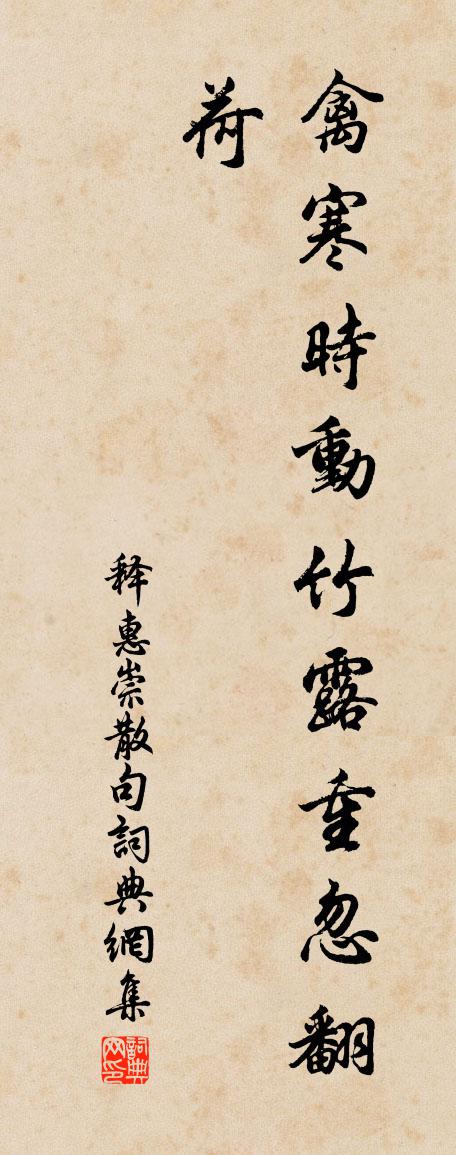 禽寒時動竹露重忽翻
荷
释惠崇散句詞典網集
詞典
网印